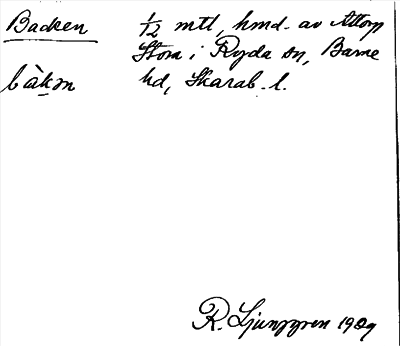 Backen 1/12 mtl, hmd. av Attorp
Stom i Ryda sn, Barne
bàkən hd, Skarab. l.
R. Ljunggren 1909